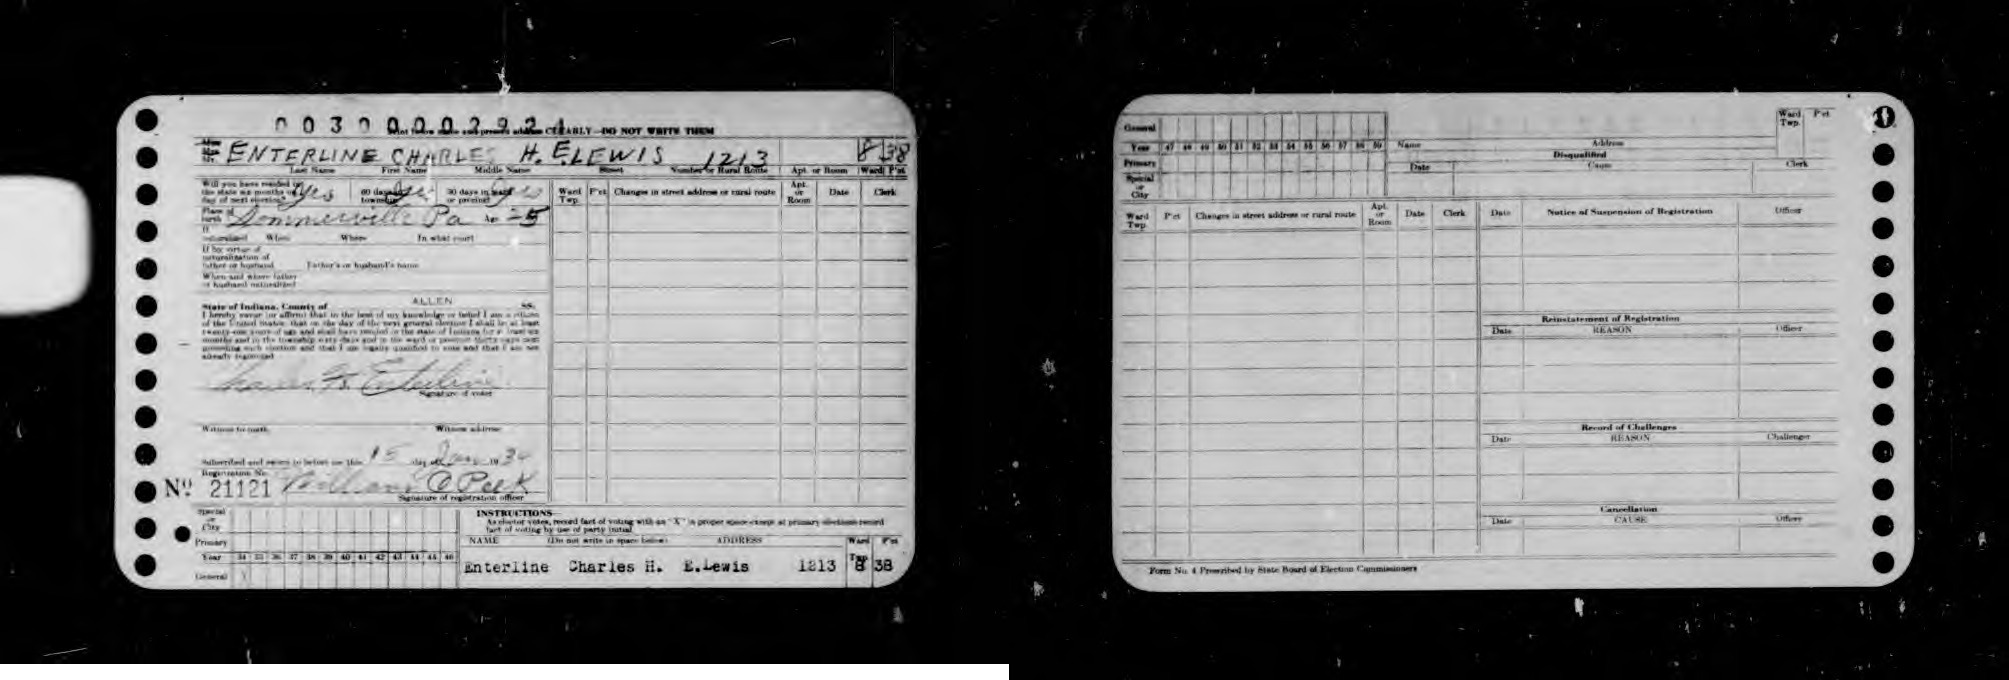 Print below name and present address CLEARLY—DO NOT WRITE THEM
ENTERLINE CHARLES H. E. LEWIS 1213 8 38
Last Name First Name Middle Name Street Number or Rural Route Apt. or Room Ward P'ct
Will you have resided in the state six months on day of next election? Yes 60 days in township Yes 30 days in ward or precinct Yes
Place of birth Sommerville Pa
If naturalized When Where In what court
If by virtue of naturalization of father or husband Father's or husband's name
When and where father or husband naturalized
State of Indiana, County of ALLEN ss.
I hereby swear (or affirm) that to the best of my knowledge or belief I am a citizen
of the United States; that on the day of the next general election I shall be at least
twenty-one years of age and shall have resided in the state of Indiana for at least six
months and in the township sixty days and in the ward or precinct thirty days next
preceding such election and that I am legally qualified to vote and that I am not
already registered
Charles H. Enterline
Signature of voter
Witness to mark Witness address
Subscribed and sworn to before me this 15 day of Jan 19 34
Registration No.
No 21121 William C Peek
Signature of registration officer
Ward Twp. P'ct Changes in street address or rural route Apt. or Room Date Clerk
Special or City
Primary
Year 34 35 36 37 38 39 40 41 42 43 44 45 46
General
INSTRUCTIONS—
As elector votes, record fact of voting with an "X" in proper space except at primary elections record
fact of voting by use of party initial
NAME (Do not write in space below) ADDRESS Ward Twp P'ct
Enterline Charles H. E.Lewis 1213 8 38
General
Year 47 48 49 50 51 52 53 54 55 56 57 58 59
Primary
Special or City
Name Address Ward Twp. P'ct
Disqualified
Date Cause Clerk
Ward Twp P'ct Changes in street address or rural route Apt. or Room Date Clerk
Date Notice of Suspension of Registration Officer
Reinstatement of Registration
Date REASON Officer
Record of Challenges
Date REASON Challenger
Cancellation
Date CAUSE Officer
Form No. 4 Prescribed by State Board of Election Commissioners